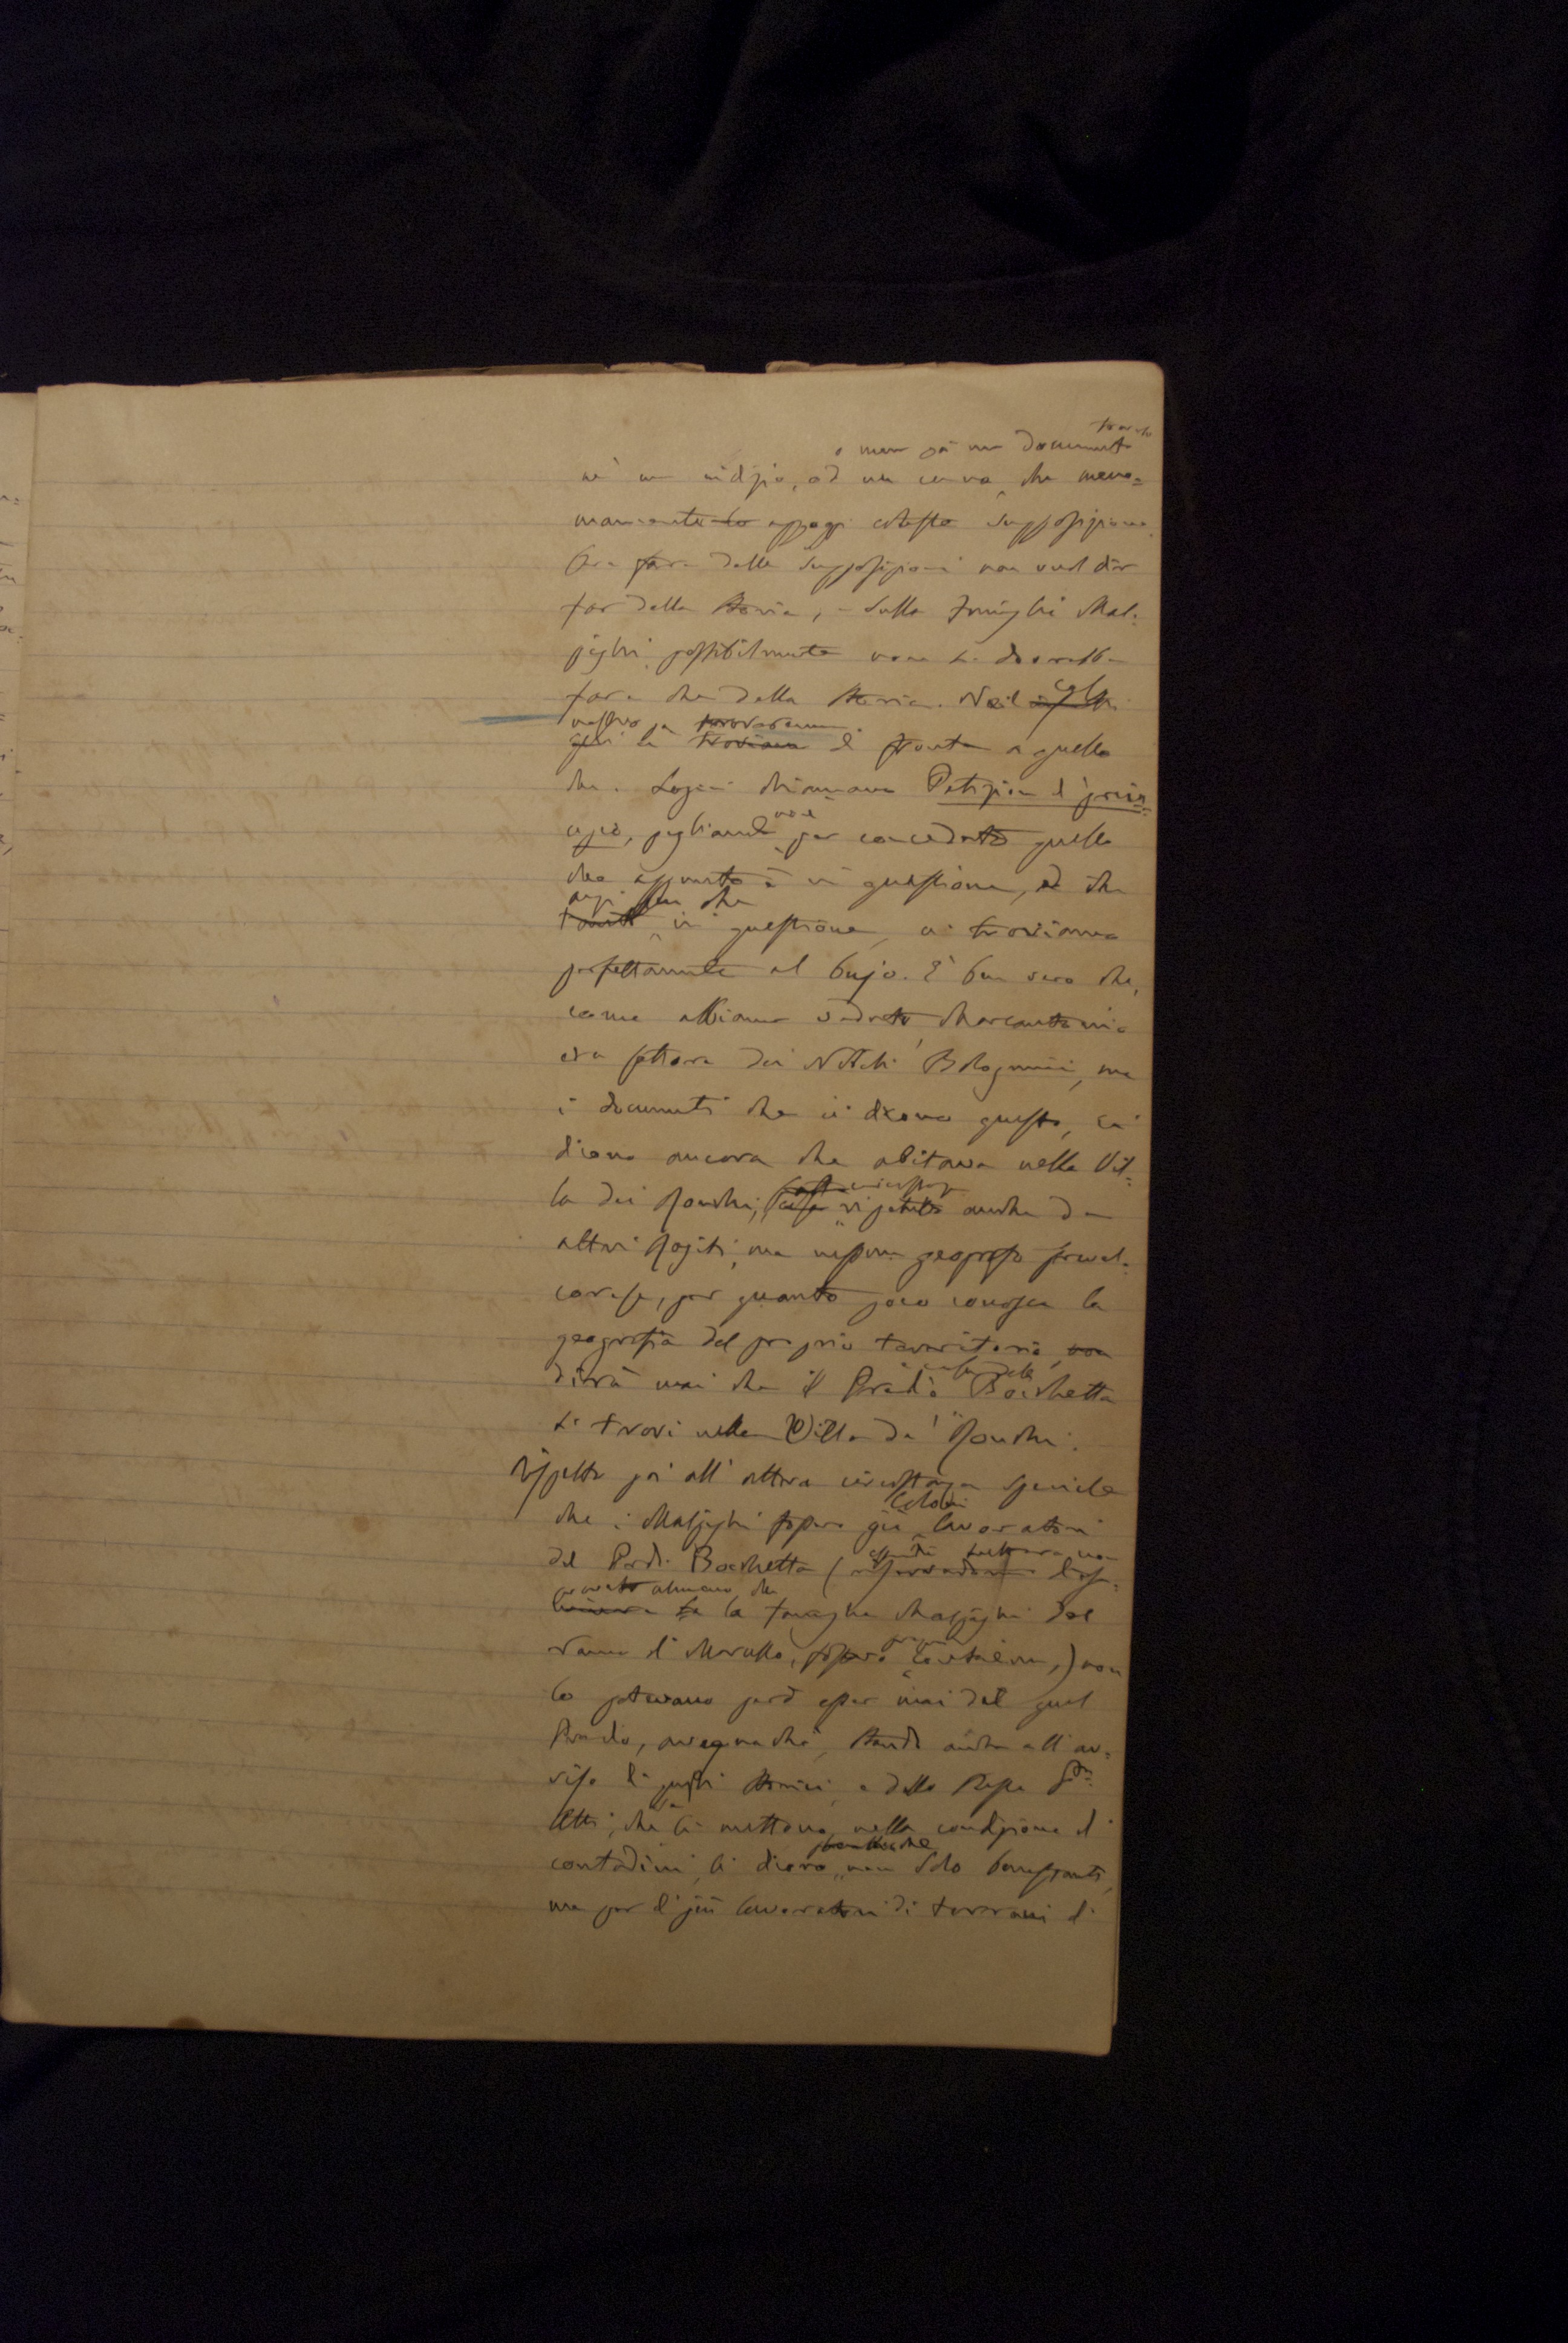 trovato
o meno già un documento
nè un indizio, od un cenno, che meno-
mamente lo appoggi cotesta supposizione.
Ora fare delle supposizioni non vuol dir
far della storia, e sulla famiglia Mal-
pighi possibilmente non si dovrebbe
fare che della storia. Nel
caso
nostro poi troveremmo
ci troviamo di fronte a quello
che i Logici chiamano Petizion di prin-
noi
cipio, pigliando per conceduto quello
che appunto è in questione, ed che
anzi che
in questione, ci troviamo
perfettamente al bujo. È ben vero che,
come abbiamo veduto Marcantonio
era fattore dei Nobili Bolognini, ma
i documenti che ci dicono questo, ci
dicono ancora che abitava nella Vil-
circostanza
la dei Ronchi, cosa ripetuta anche da
altri Rogiti, ma nessun geografo creval-
corese, per quanto poco conosca la
geografia del proprio territorio, non
dirà mai che il Predio Bocchetta
si trovi nella Villa de' Ronchi.
Rispetto poi all'altra circostanza speciale
Coloni
che i Malpighi fossero già lavoratori
del Predio Bocchetta (
provato almeno che
la famiglia Malpighi del
ramo di Marcello, fosse contadina,) non
lo potevano però esser mai del quel
Predio, avvegnachè, stando anche all'av-
viso di questi storici, e dello stesso
Atti, che li mettono nella condizione di
contadini, li dicono non solo benestanti,
ma per di più lavoratori di terreni di